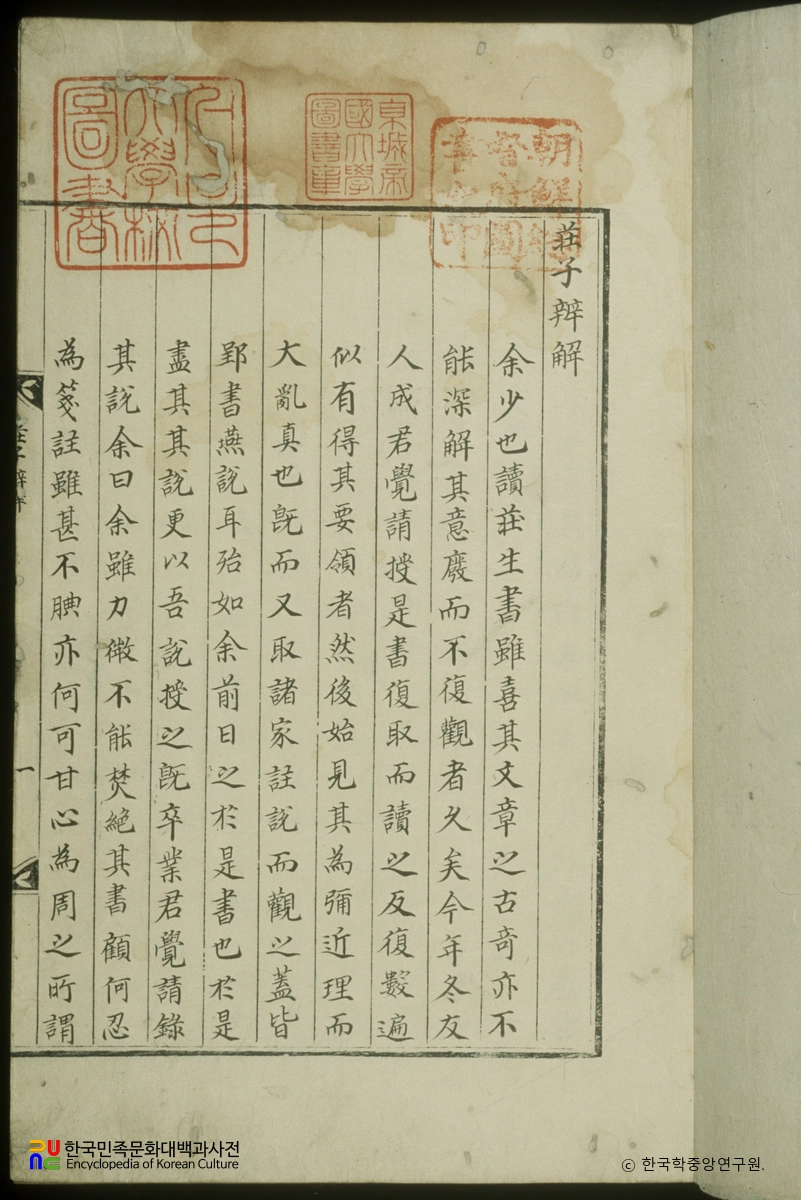 朝鮮總
督府圖
書之印
京城帝
國大學
圖書章
서울
大學校
圖書
莊子辨解
余少也讀莊生書雖喜其文章之古奇亦不
能深解其意廢而不復觀者久矣今年冬友
人成君覺請授是書復取而讀之反復數遍
似有得其要領者然後始見其為彌近理而
大亂真也既而又取諸家註說而觀之蓋皆
郢書燕說耳殆如余前日之於是書也於是
盡其其說更以吾說授之既卒業君覺請錄
其說余曰余雖力微不能焚絕其書顧何忍
為箋註雖甚不腆亦何可甘心為周之所謂
一
한국민족문화대백과사전
Encyclopedia of Korean Culture
ⓒ 한국학중앙연구원.